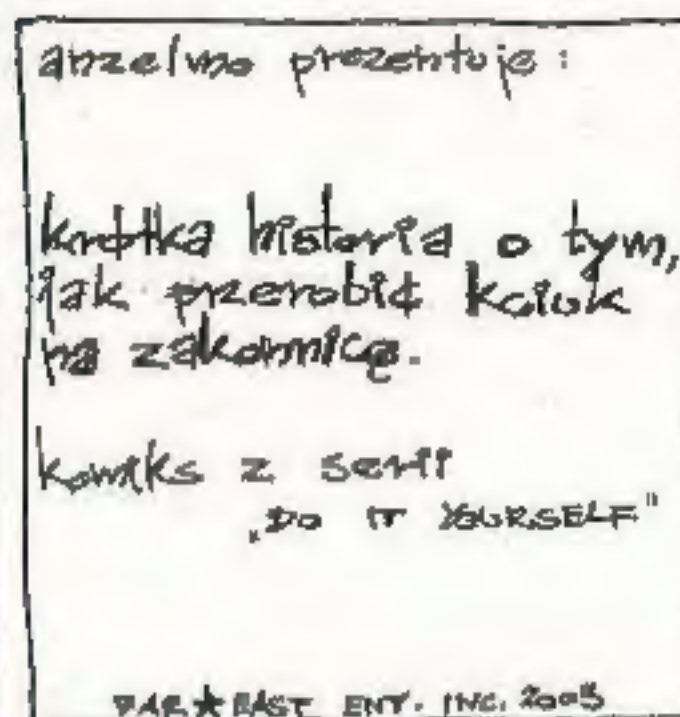 anzelmo prezentuje:
krótka historia o tym,
jak przerobić kciuk
na zakonnicę.
komiks z serii
„DO IT YOURSELF"
FAR★EAST ENT. INC. 2005